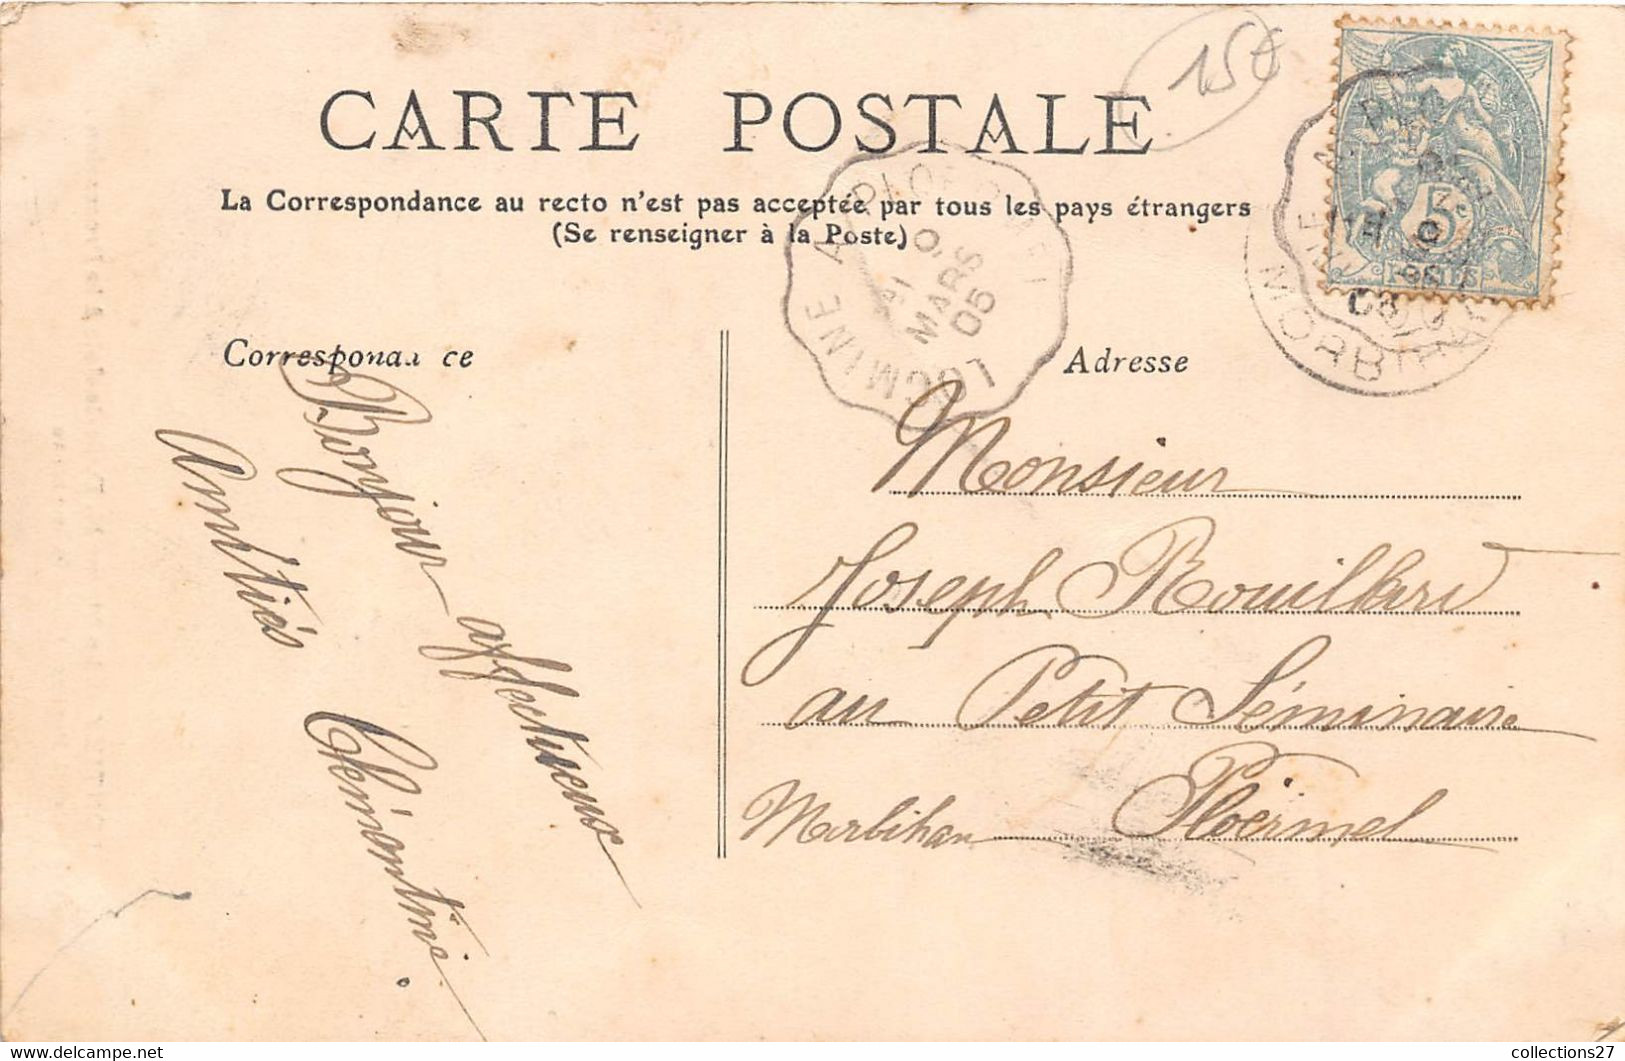 15€
CARTE POSTALE
La Correspondance au recto n'est pas acceptée par tous les pays étrangers
(Se renseigner à la Poste)
LOCMINE A PLOERMEL
MARS
05
MORBIHAN
5
Correspondance
Adresse
Bonjour affectueux
Amitiés
Clémentine.
Monsieur
Joseph Rouillard
au Petit Séminaire
Ploërmel
Morbihan
collections27